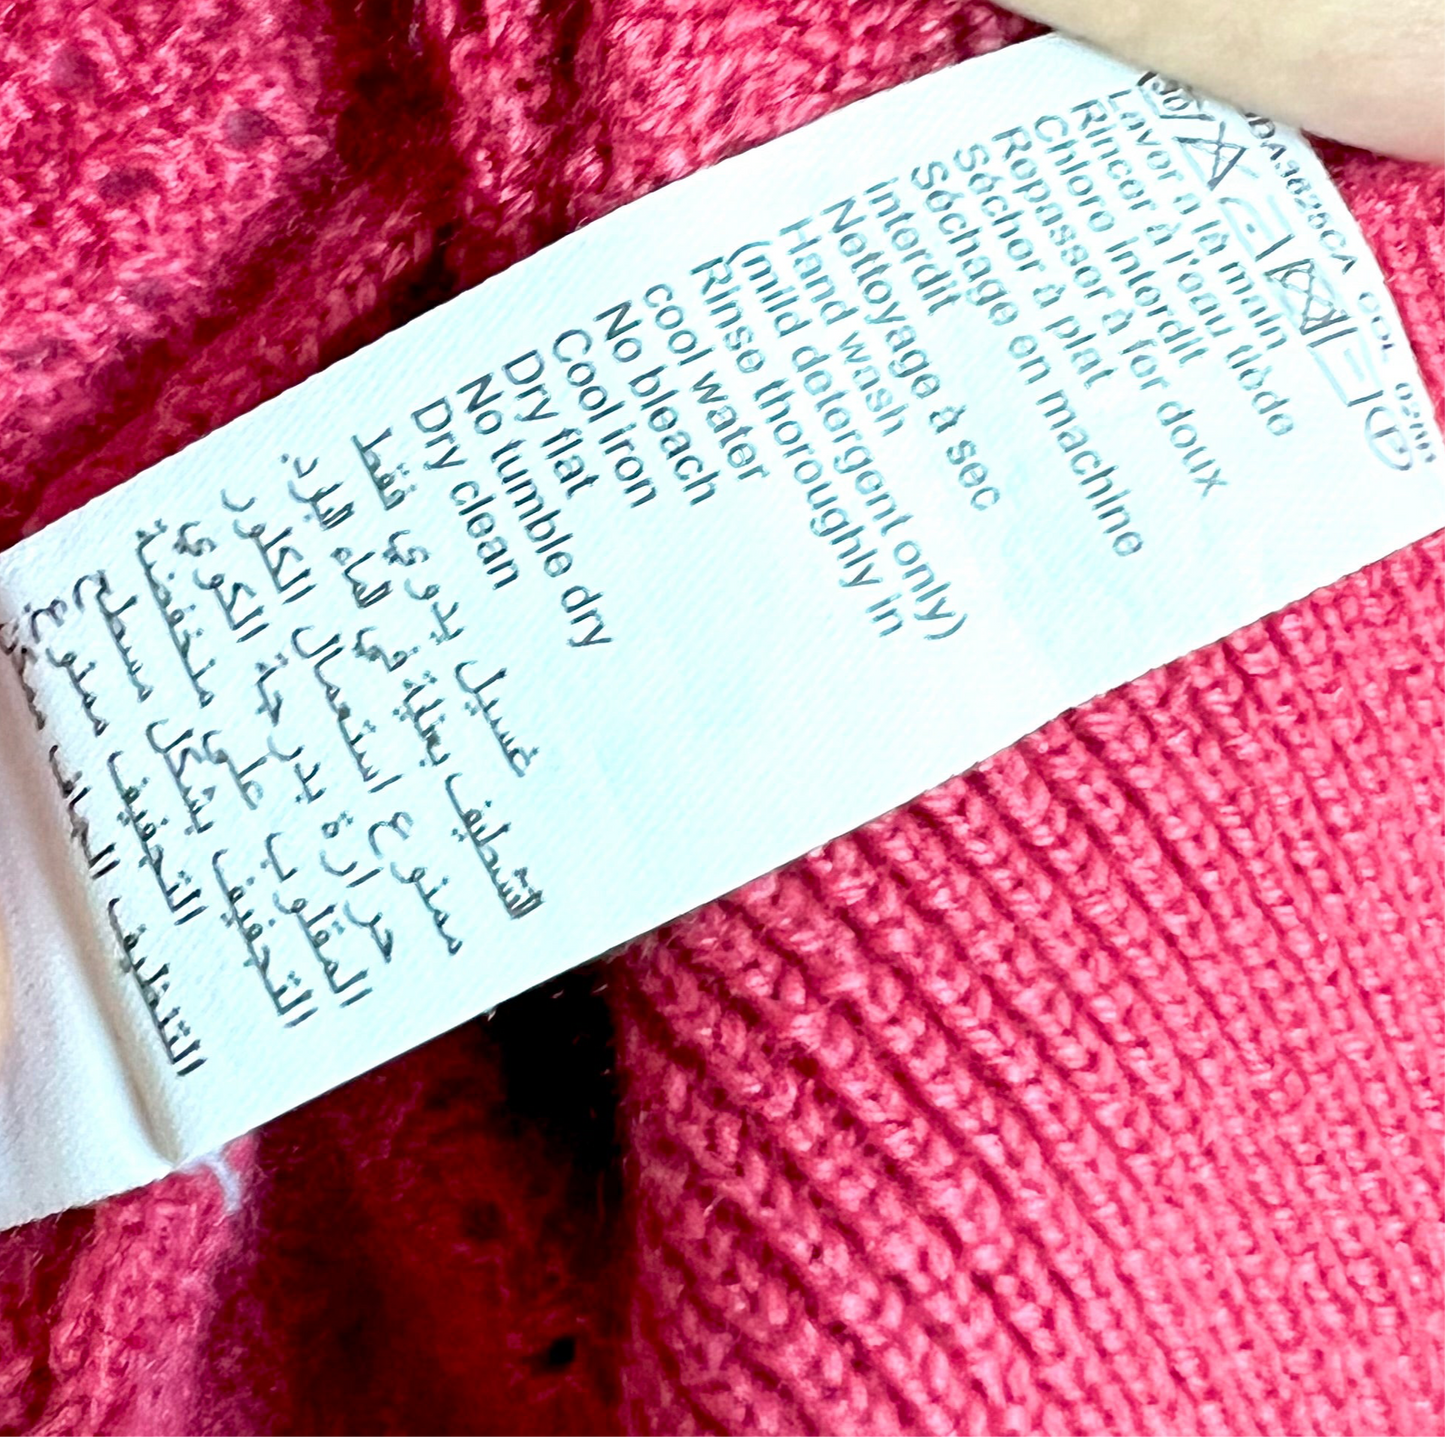 DA3625SCA COL 02
30 P
Laver à la main
Rincer à l'eau tiède
Chlore interdit
Repasser à fer doux
Sécher à plat
Séchage en machine
interdit
Nettoyage à sec
Hand wash
(mild detergent only)
Rinse thoroughly in
cool water
No bleach
Cool iron
Dry flat
No tumble dry
Dry clean
غسيل يدوي فقط
التشطيف بعناية في الماء البارد
ممنوع استعمال الكلور
حرارة بدرجة الكوي
المقلوب على منخفضة
التجفيف بشكل مسطح
التجفيف ممنوع
التنظيف الجاف